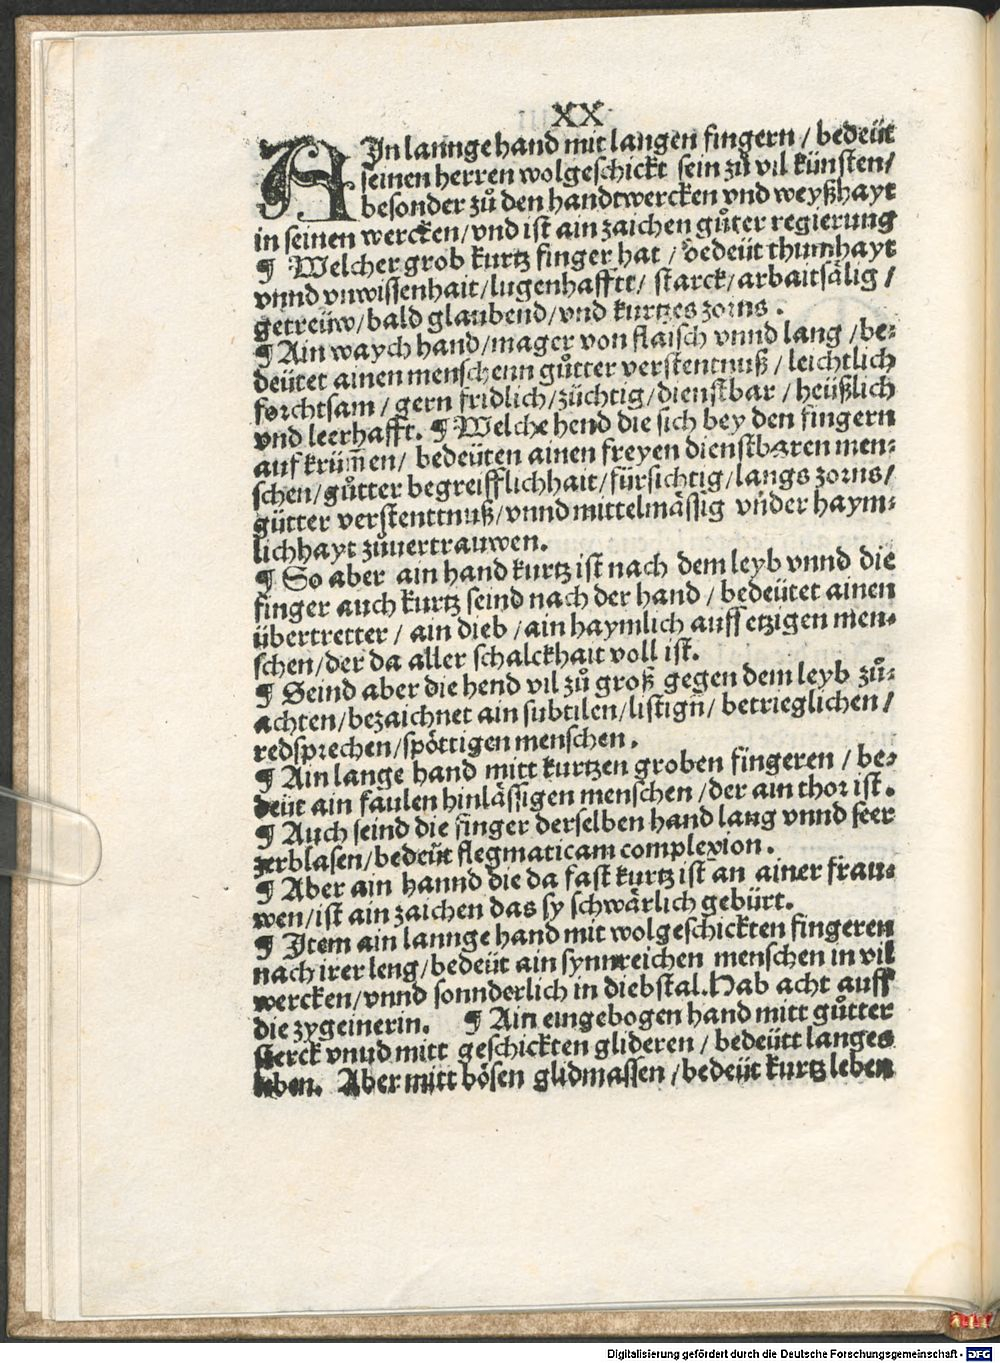 XX
AIn lannge hand mit langen fingern / bedeüt
seinen herren wolgeschickt sein zů vil künsten/
besonder zů den handtwercken vnd weyßhayt
in seinen wercken/vnd ist ain zaichen gůter regierung
¶ Welcher grob kurtz finger hat / bedeüt thumhayt
vnnd vnwissenhait/lugenhafftt/ starck/arbaitsälig /
getreüw/bald glaubend/vnd kurtzes zorns .
¶ Ain waych hand/mager von flaisch vnnd lang /be⸗
deütet ainen menschenn gůtter verstentnuß / leichtlich
forchtsam / gern fridlich/züchtig/dienstbar / heüßlich
vnd leerhafft. ¶ Welche hend die sich bey den fingern
auf krüm̃en/ bedeüten ainen freyen dienstbaren men⸗
schen/gůtter begreifflichhait/fürsichtig/langs zorns/
gütter verstenttnuß/vnnd mittelmässig vn̈der haym⸗
lichhayt zůuertrauwen.
¶ So aber ain hand kurtz ist nach dem leyb vnnd die
finger auch kurtz seind nach der hand / bedeütet ainen
übertretter / ain dieb /ain haymlich auffsetzigen men⸗
schen/der da aller schalckhait voll ist.
¶ Seind aber die hend vil zů groß gegen dem leyb zů⸗
achten/bezaichnet ain subtilen/listign̄/ betrieglichen/
redsprechen/spöttigen menschen .
¶ Ain lange hand mitt kurtzen groben fingeren / be⸗
deüt ain faulen hinlässigen menschen /der ain thor ist.
¶ Auch seind die finger derselben hand lang vnnd seer
zerblasen/bedeüt flegmaticam complexion .
¶ Aber ain hannd die da fast kurtz ist an ainer frau⸗
wen/ist ain zaichen das sy schwärlich gebürt.
¶ Item ain lannge hand mit wolgeschickten fingeren
nach irer leng/bedeüt ain synnreichen menschen in vil
wercken/vnnd sonnderlich in diebstal.Hab acht auff
die zygeinerin. ¶ Ain eingebogen hand mitt gůtter
sterck vnnd mitt geschickten glideren / bedeütt langes
leben. Aber mitt bösen glidmassen /bedeüt kurtz leben
Digitalisierung gefördert durch die Deutsche Forschungsgemeinschaft - DFG